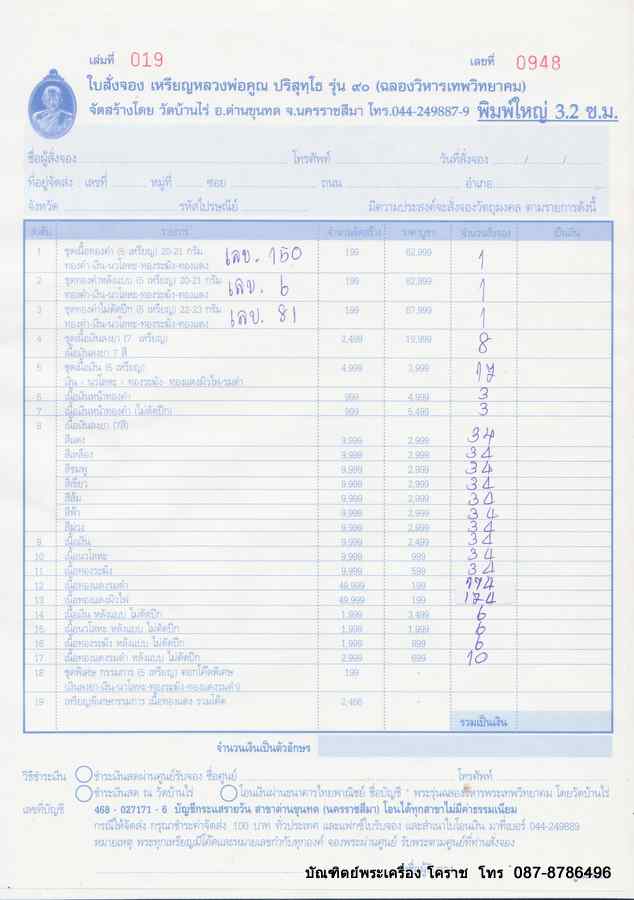 เล่มที่ 019 เลขที่ 0948
ใบสั่งจอง เหรียญหลวงพ่อคูณ ปริสุทฺโธ รุ่น ๙๐ (ฉลองวิหารเทพวิทยาคม)
จัดสร้างโดย วัดบ้านไร่ อ.ด่านขุนทด จ.นครราชสีมา โทร.044-249887-9 พิมพ์ใหญ่ 3.2 ซ.ม.
ชื่อผู้สั่งจอง โทรศัพท์ วันที่สั่งจอง / /
ที่อยู่จัดส่ง เลขที่ หมู่ที่ ซอย ถนน อำเภอ
จังหวัด รหัสไปรษณีย์ มีความประสงค์จะสั่งจองวัตถุมงคล ตามรายการดังนี้
ลำดับ รายการ จำนวนจัดสร้าง ราคาบูชา จำนวนสั่งจอง เป็นเงิน
1 ชุดเนื้อทองคำ (5 เหรียญ) 20-21 กรัม เลข. 150 199 62,999 1
ทองคำ-เงิน-นวโลหะ-ทองระฆัง-ทองแดง
2 ชุดทองคำหลังแบบ (5 เหรียญ) 20-21 กรัม เลข. 6 199 62,999 1
ทองคำ-เงิน-นวโลหะ-ทองระฆัง-ทองแดง
3 ชุดทองคำไม่ตัดปีก (5 เหรียญ) 22-23 กรัม เลข. 81 199 67,999 1
ทองคำ-เงิน-นวโลหะ-ทองระฆัง-ทองแดง
4 ชุดเนื้อเงินลงยา (7 เหรียญ) 2,499 19,999 8
เนื้อเงินลงยา 7 สี
5 ชุดเนื้อเงิน (5 เหรียญ) 4,999 3,999 17
เงิน - นวโลหะ - ทองระฆัง- ทองแดงผิวไฟ/รมดำ
6 เนื้อเงินหน้าทองคำ 999 4,999 3
7 เนื้อเงินหน้าทองคำ (ไม่ตัดปีก) 999 5,499 3
8 เนื้อเงินลงยา (7สี)
สีแดง 9,999 2,999 34
สีเหลือง 9,999 2,999 34
สีชมพู 9,999 2,999 34
สีเขียว 9,999 2,999 34
สีส้ม 9,999 2,999 34
สีฟ้า 9,999 2,999 34
สีม่วง 9,999 2,999 34
9 เนื้อเงิน 9,999 2,499 34
10 เนื้อนวโลหะ 9,999 999 34
11 เนื้อทองระฆัง 9,999 599 34
12 เนื้อทองแดงรมดำ 49,999 199 174
13 เนื้อทองแดงผิวไฟ 49,999 199 174
14 เนื้อเงิน หลังแบบ ไม่ตัดปีก 1,999 3,499 6
15 เนื้อนวโลหะ หลังแบบ ไม่ตัดปีก 1,999 1,999 6
16 เนื้อทองระฆัง หลังแบบ ไม่ตัดปีก 1,999 899 6
17 เนื้อทองแดงรมดำ หลังแบบ ไม่ตัดปีก 2,999 699 10
18 ชุดพิเศษ กรรมการ (5 เหรียญ) ตอกโค๊ตพิเศษ 199 -
(เงินลงยา-เงิน-นวโลหะ-ทองระฆัง-ทองแดงรมดำ)
19 เหรียญพิเศษกรรมการ เนื้อทองแดง รวมโค๊ต 2,468 -
รวมเป็นเงิน
จำนวนเงินเป็นตัวอักษร
วิธีชำระเงิน ชำระเงินสดผ่านศูนย์รับจอง ชื่อศูนย์ โทรศัพท์
ชำระเงินสด ณ วัดบ้านไร่ โอนเงินผ่านธนาคารไทยพาณิชย์ ชื่อบัญชี พระรุ่นฉลองวิหารพระเทพวิทยาคม โดยวัดบ้านไร่
เลขที่บัญชี 468 - 027171 - 6 บัญชีกระแสรายวัน สาขาด่านขุนทด (นครราชสีมา) โอนได้ทุกสาขาไม่มีค่าธรรมเนียม
กรณีให้จัดส่ง กรุณาชำระค่าจัดส่ง 100 บาท ทั่วประเทศ และแฟกซ์ใบรับจอง และสำเนาใบโอนเงิน มาที่เบอร์ 044-249889
หมายเหตุ พระทุกเหรียญมีโค๊ตและหมายเลขกำกับทุกองค์ จองพระผ่านศูนย์ รับพระตามศูนย์ที่ท่านสั่งจอง
บัณฑิตย์พระเครื่อง โคราช โทร 087-8786496